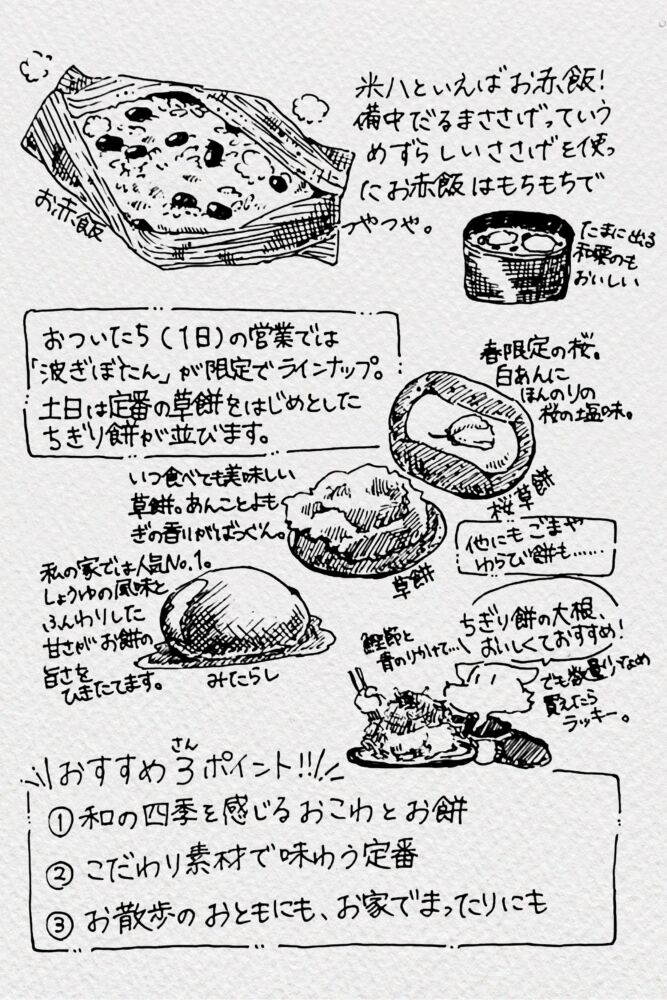 米八といえばお赤飯!
備中だるまささげっていう
めずらしいささげを使っ
たお赤飯はもちもちで
つやつや。
お赤飯
たまに出る
和栗のも
おいしい
おついたち(1日)の営業では
「波ぎぼたん」が限定でラインナップ。
土日は定番の草餅をはじめとした
ちぎり餅が並びます。
春限定の桜。
白あんに
ほんのりの
桜の塩味。
桜草餅
いつ食べても美味しい
草餅。あんことよも
ぎの香りがばつぐん。
草餅
他にもごまや
わらび餅も……
私の家では人気No.1。
しょうゆの風味と
ふんわりした
甘さがお餅の
旨さを
ひきたてます。
みたらし
鰹節と
青のりかけて…
ちぎり餅の大根、
おいしくておすすめ!
でも数量少なめ
買えたら
ラッキー。
さん
おすすめ3ポイント!!
① 和の四季を感じるおこわとお餅
② こだわり素材で味わう定番
③ お散歩のおともにも、お家でまったりにも